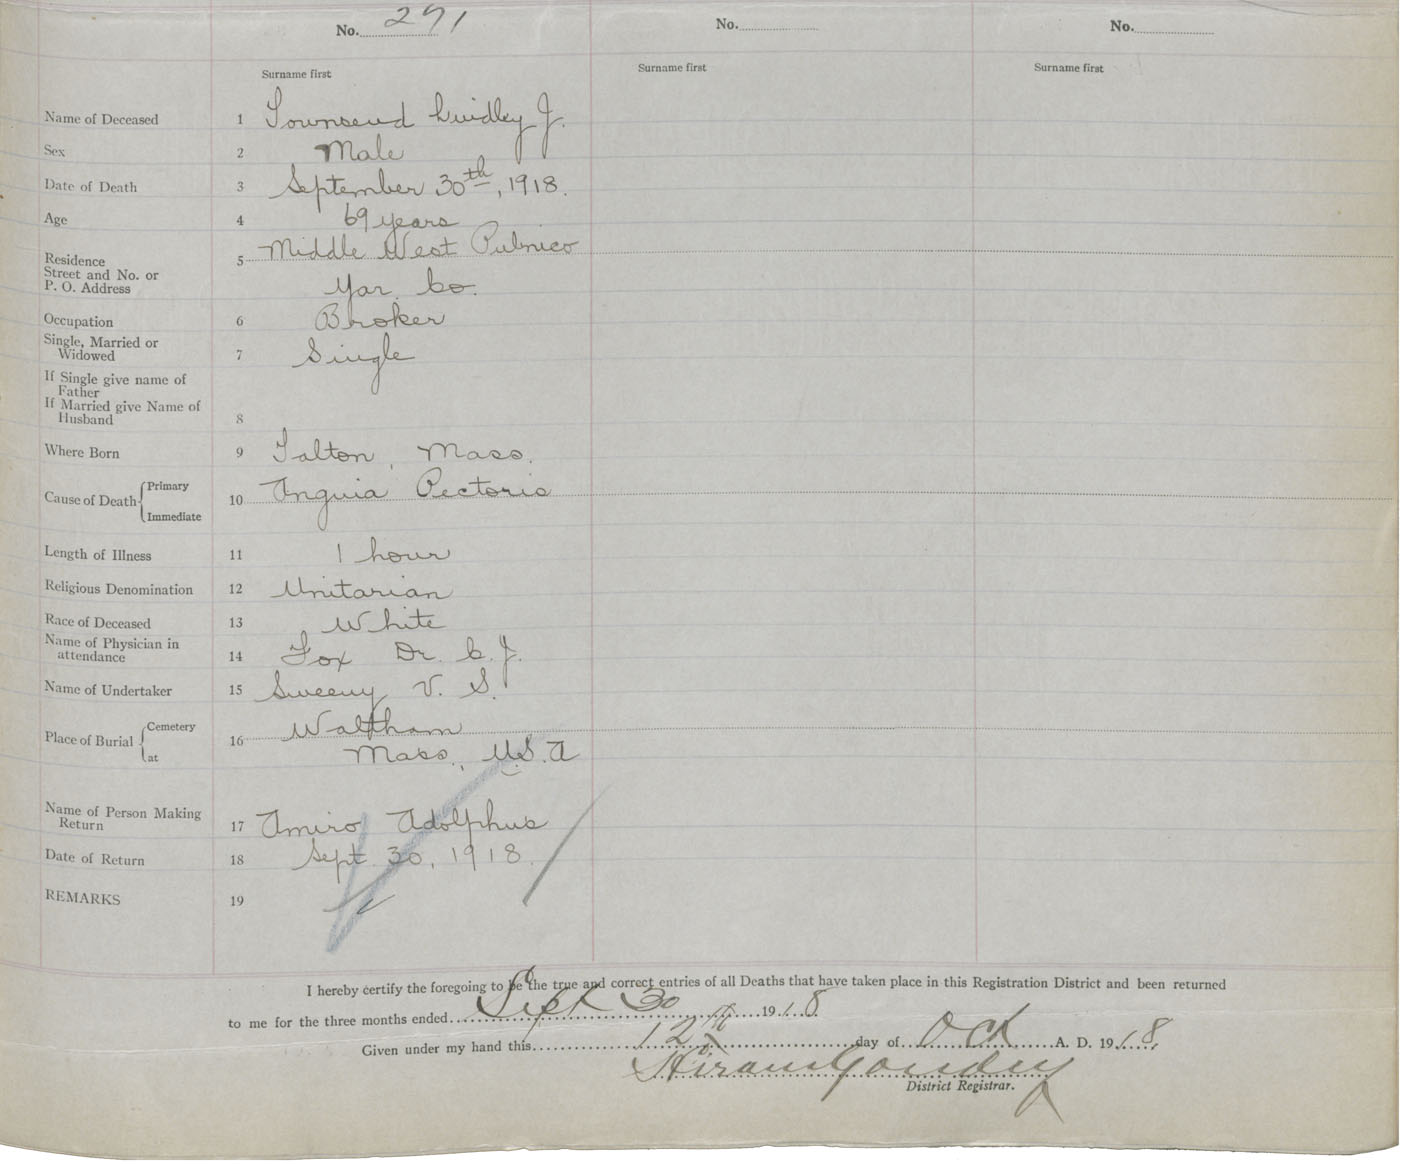 No. 291 No. No.
Surname first Surname first Surname first
Name of Deceased 1 Townsend Lindley J.
Sex 2 Male
Date of Death 3 September 30th, 1918.
Age 4 69 years
Residence
Street and No. or
P. O. Address 5 Middle West Pubnico
Yar. Co.
Occupation 6 Broker
Single, Married or
Widowed 7 Single
If Single give name of
Father
If Married give Name of
Husband 8
Where Born 9 Talton, Mass.
Cause of Death Primary
Immediate 10 Anguia Pectoris
Length of Illness 11 1 hour
Religious Denomination 12 Unitarian
Race of Deceased 13 White
Name of Physician in
attendance 14 Fox Dr. C. J.
Name of Undertaker 15 Sweeny V. S.
Place of Burial Cemetery
at 16 Waltham
Mass., U.S.A
Name of Person Making
Return 17 Amiro Adolphus
Date of Return 18 Sept 30, 1918.
REMARKS 19
I hereby certify the foregoing to be the true and correct entries of all Deaths that have taken place in this Registration District and been returned
to me for the three months ended Sept 30th 1918
Given under my hand this 12th day of Oct A. D. 1918.
Hiram Goudey
District Registrar.